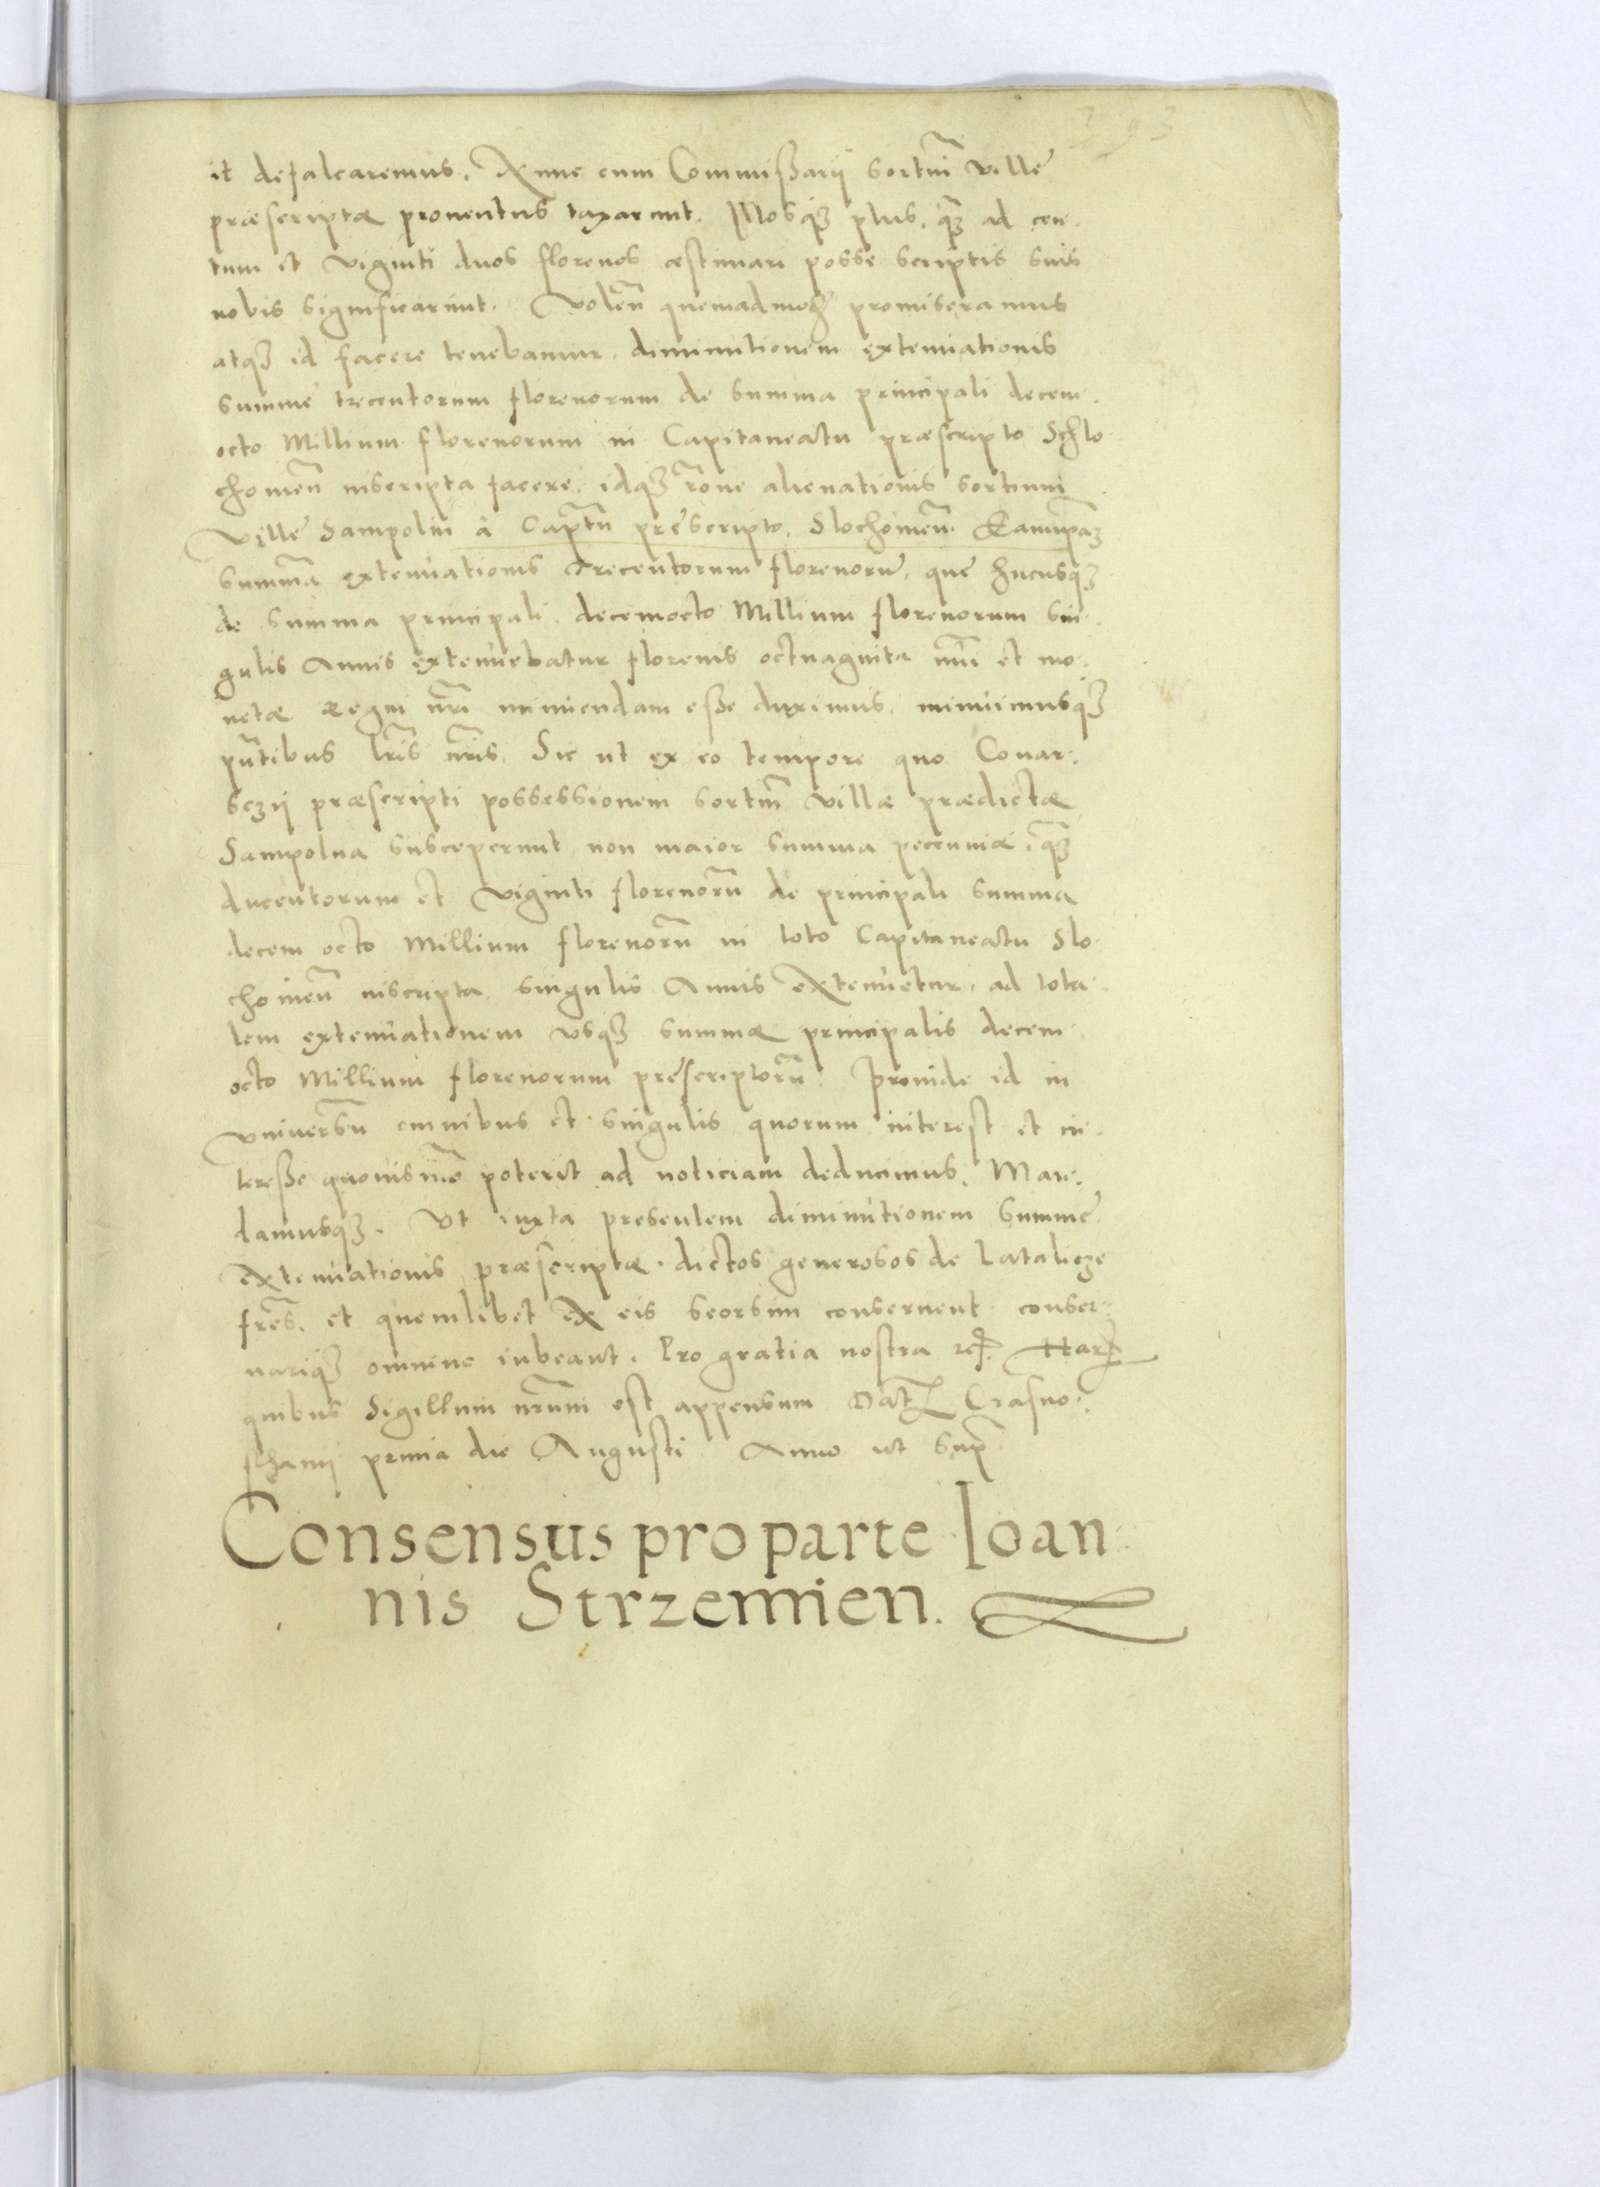 393
et defalcaremus. Et nunc cum Commissarij sortiũ ville
præscriptæ prouentus taxarunt. Illosq3 plus, q3 ad cen-
tum et viginti duos florenos æstimari posse scriptis suis
nobis significarint. Volen̄ quemadmod promiseramus
atq3 id facere tenebamur, diminutionem extenuationis
summe trecentorum florenorum de summa principali decem-
octo Millium florenorum in Capitaneatu præscripto Schlo-
chowien̄ inscripta facere, idq3 rõne alienationis sortium
Ville Sampolni à Cap̃tu prescripto, Slochowien̄.
Summã extenuationis trecentorum florenorũ, que hucusq3
de summa principali, decemocto Millium florenorum sin-
gulis Annis extenuebatur florenis octuaginta mũi et mo-
netæ Regni nr̃i minuendam esse duximus, minuimusq3
pñtibus lr̃is nr̃is, Sic ut ex eo tempore quo Conar-
sczij præscripti possessionem sortiũ villæ prædictæ
Sampolna susceperunt, non maior summa pecuniæ, q3
ducentorum et viginti florenorũ de principali summa
decem octo Millium florenorũ in toto Capitaneatu Slo-
chowien̄ inscripta singulis Annis extenuetur, ad tota-
lem extenuationem vsq3 summæ principalis decem-
octo Millium florenorum prescriptorũ. Proinde id in
vniuersũ omnibus et singulis quorum interest et in-
teresse quouismõ poterit ad noticiam deducimus. Man-
damusq3. Vt iuxta presentem diminutionem summe
extenuationis præscriptæ dictos generosos de Latalicze
fr̃es, et quemlibet ex eis seorsim conseruent conser-
uariq3 omnino iubeant. Pro gratia nostra
quibus Sigillum nr̃um est appensum Dat Crasno-
sthawij prima die Augusti Anno ut sup̃
Consensus pro parte Ioan-
nis Strzemien.